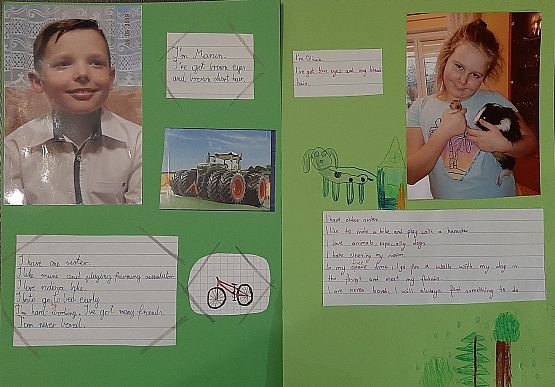 I'm Marcin.
I've got brown eyes
and brown short hair.
I have one sister.
I like music and playing farming simulator.
I love riding bike.
I hate go to bed early.
I'm hard working. I've got many friends.
I am never bored.
I'm
I've got blue eyes and my blond
hair.
I have older sister.
I like to ride a bike and play with a hamster.
I love animals, especially dogs.
I hate cleaning my room.
In my spare time, I go for a walk with my dog in
the forest and meet my friends.
I am never bored. I will always find something to do.